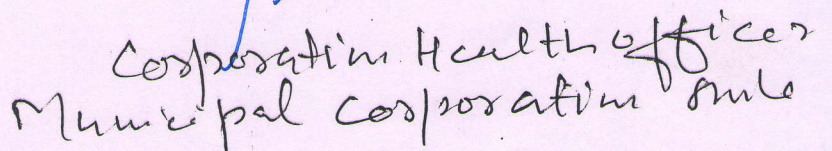 Corporation Health officer
Municipal Corporation Smla